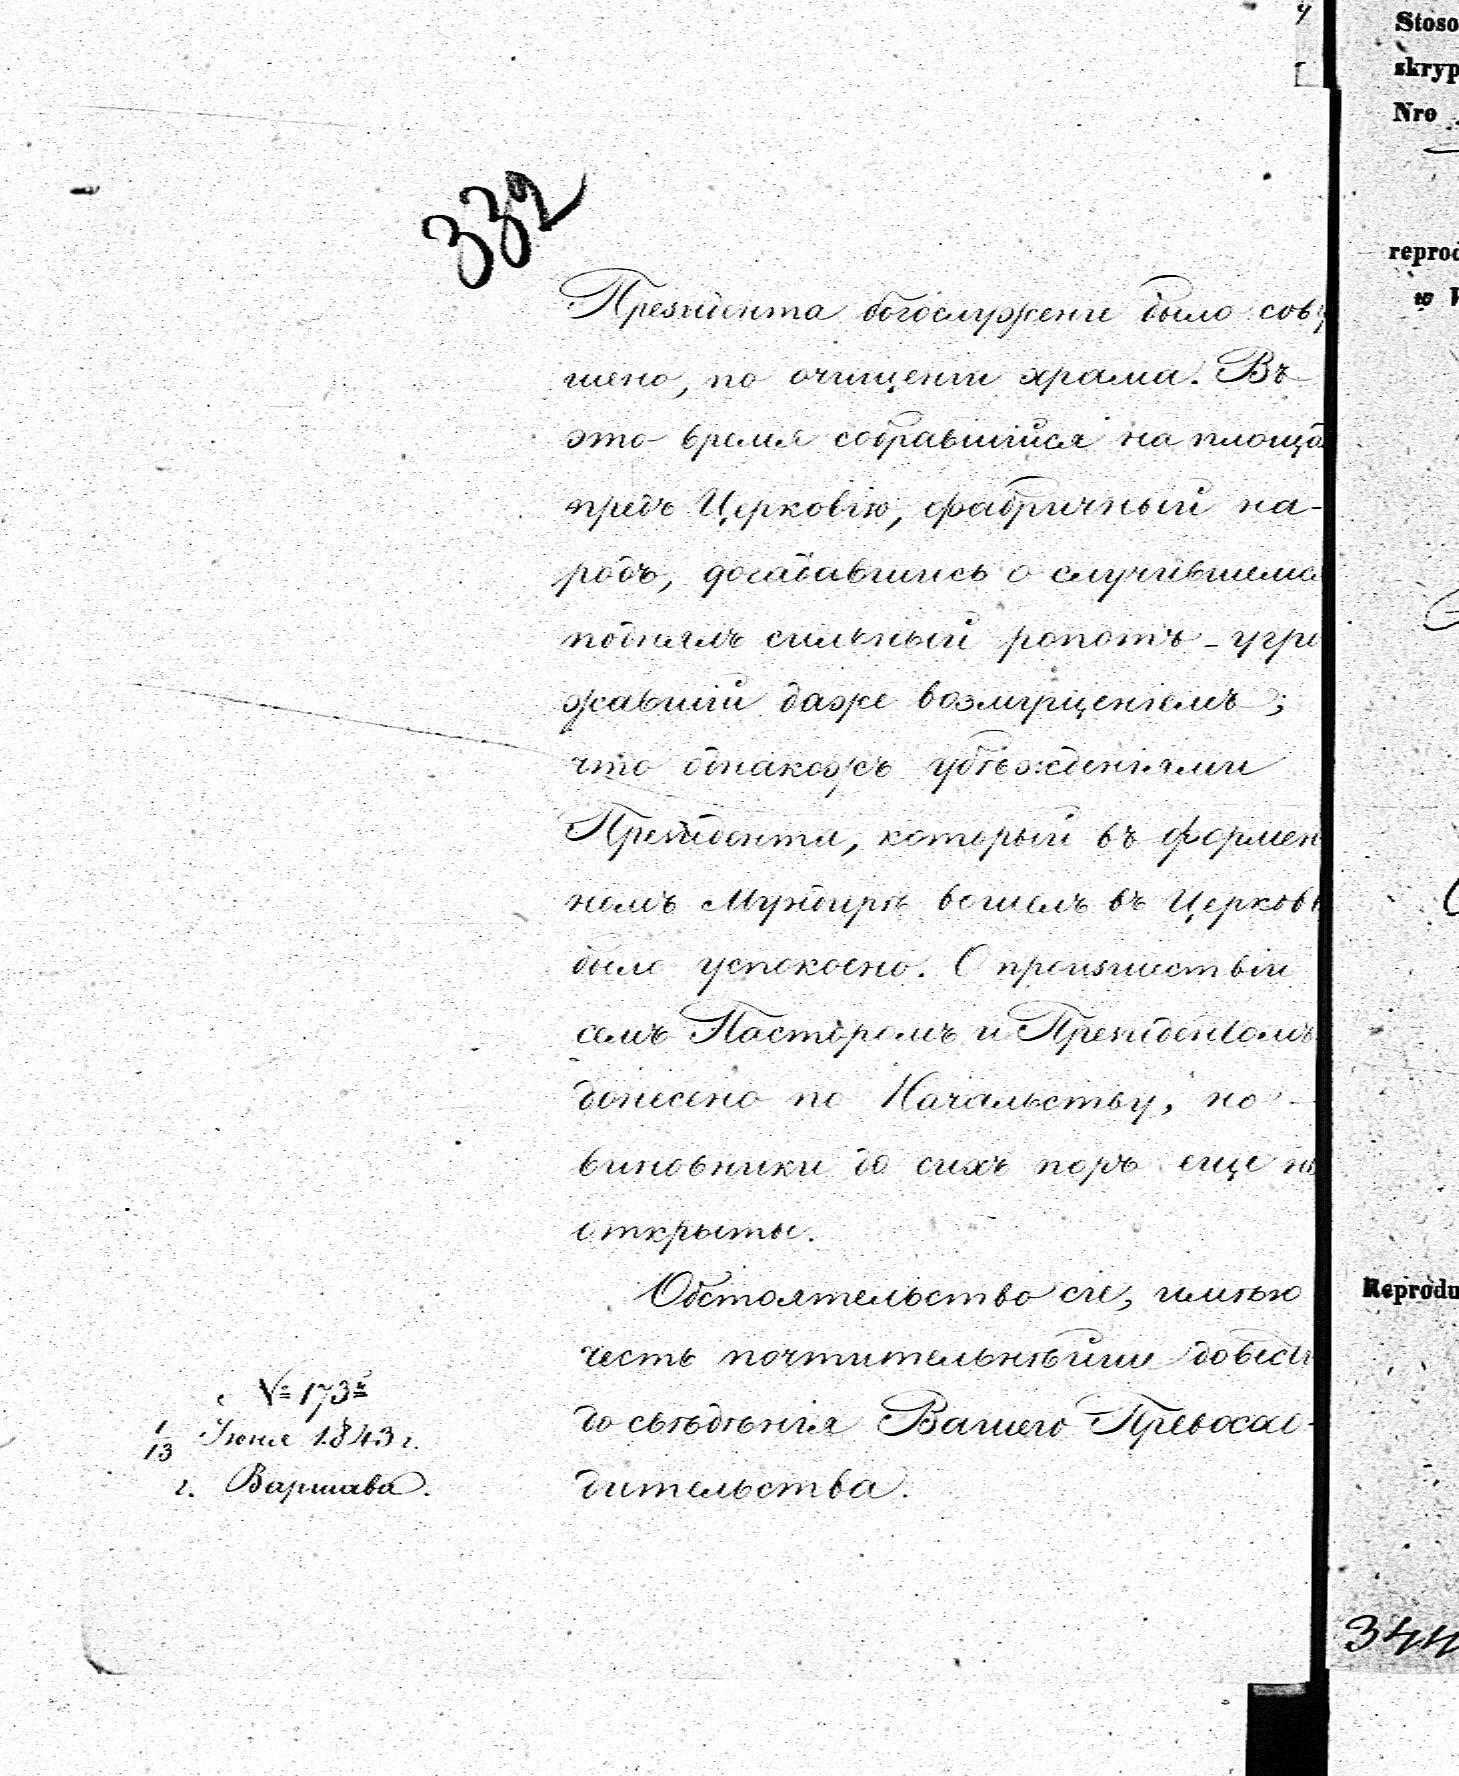 332
Президента богослуженіе было сов
шено, по очищеніи храма. Въ
это время собравшійся на площа
предъ Церковію, фабричный на-
родъ, догадавшись о случившема
поднялъ сильный ропотъ - угро
жавшій даже возмущеніемъ;
что однакожъ убѣжденіями
Президента, который въ формен
номъ Мундирѣ вошелъ въ Церковь
было успокоено. О происшествіи
семъ Пасторомъ и Президентомъ
донесено по Начальству, но -
виновники до сихъ поръ еще не
открыты.
Обстоятельство сіе, имѣю
честь почтительнѣйше довести
до свѣдѣнія Вашего Превосхо-
дительства.
№ 173
1/13 Іюня 1843 г.
г. Варшава.
Stoso
skryp
Nro
reprod
w
Reprodu
344